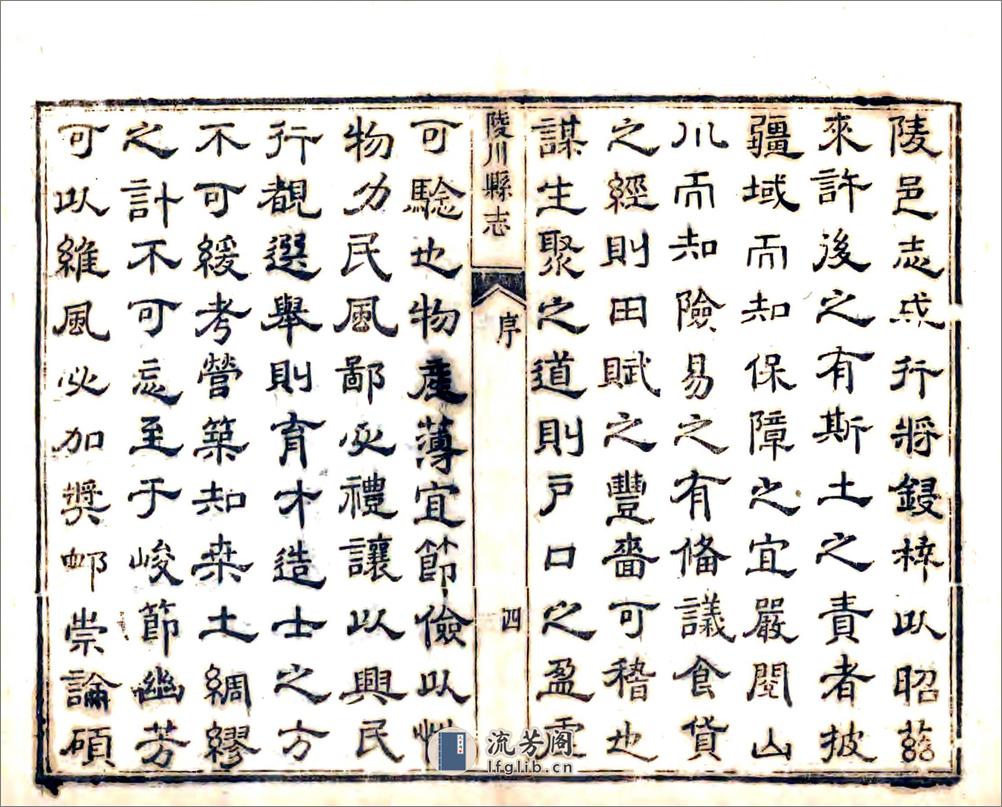 陵邑志成行將鋟梓以昭茲
來許後之有斯土之責者披
疆域而知保障之宜嚴閱山
川而知險易之有備議食貨
之經則田賦之豐嗇可稽也
謀生聚之道則戶口之盈虛
陵川縣志
序
四
可騐也物產薄宜節儉以
物力民風鄙必禮讓以興民
行觀選舉則育才造士之方
不可緩考營築知桑土綢繆
之計不可忘至于峻節幽芳
可以維風必加獎卹崇論碩
流芳阁
lfglib.cn